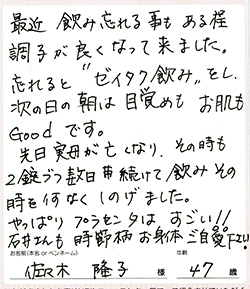 最近 飲み忘れる事も ある程
調子が良くなって来ました。
忘れると “ゼイタク飲み”をし、
次の日の朝は目覚めも お肌も
Good です。
先日 実母が亡くなり、その時も
2錠づつ数日間続けて飲み その
時を何なくしのげました。
やっぱり プラセンタは すごい!!
石井さんも 時節柄 お身体ご自愛下さい
お名前(本名 or ペンネーム) 年齢
佐々木 隆子 様 47 歳